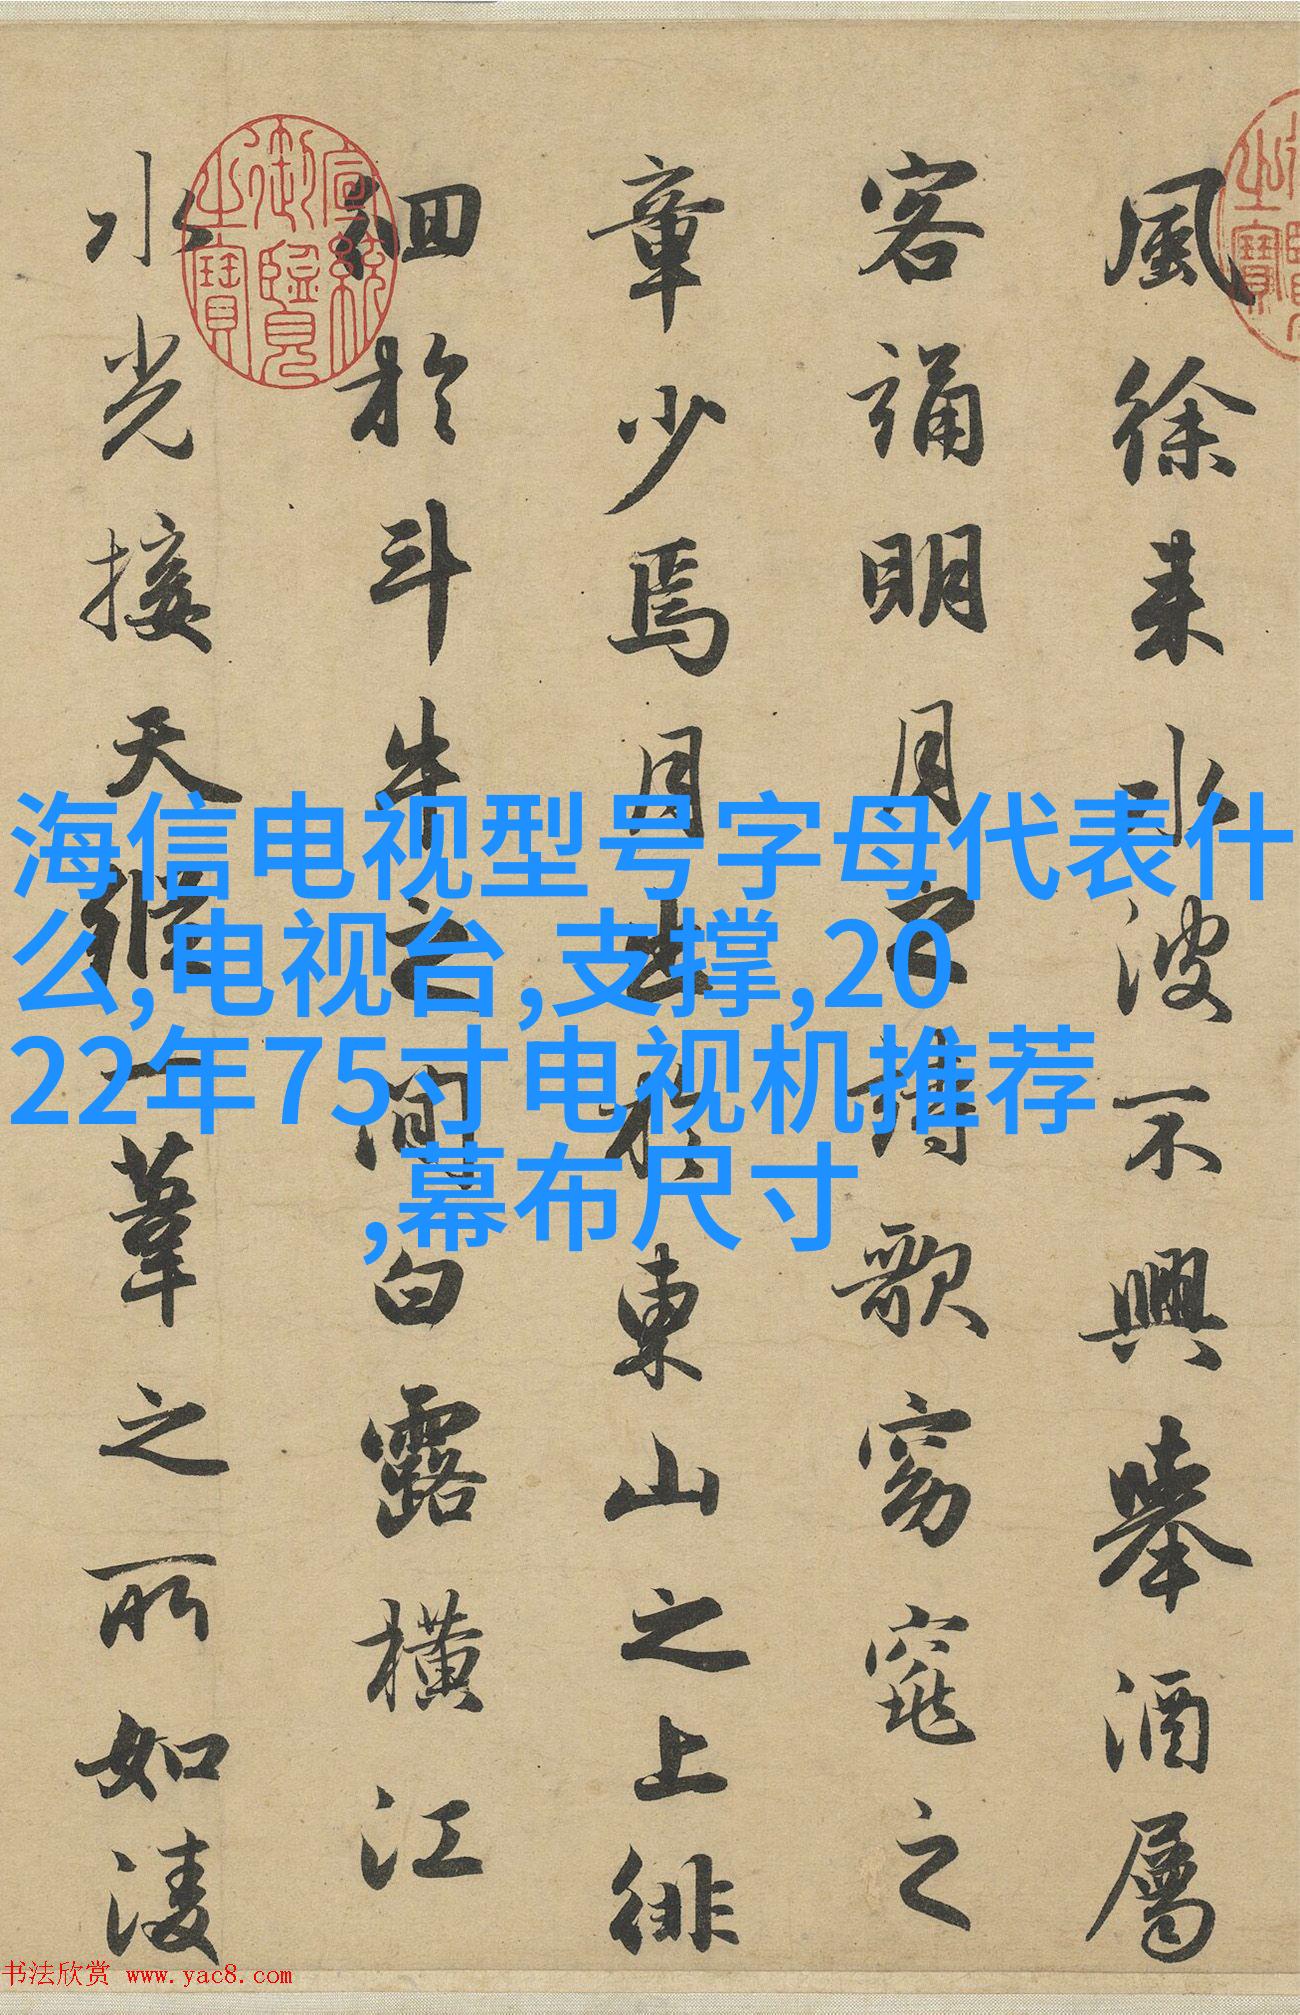 風徐来水波不興舉酒屬
客誦明月之詩歌窈窕之
章少焉月出於東山之上徘
徊於斗牛之間白露橫江
水光接天縱一葦之所如淩
宣統御覽之寶
海信电视型号字母代表什
么,电视台,支撑,20
22年75寸电视机推荐
,幕布尺寸
书法欣赏 www.yac8.com